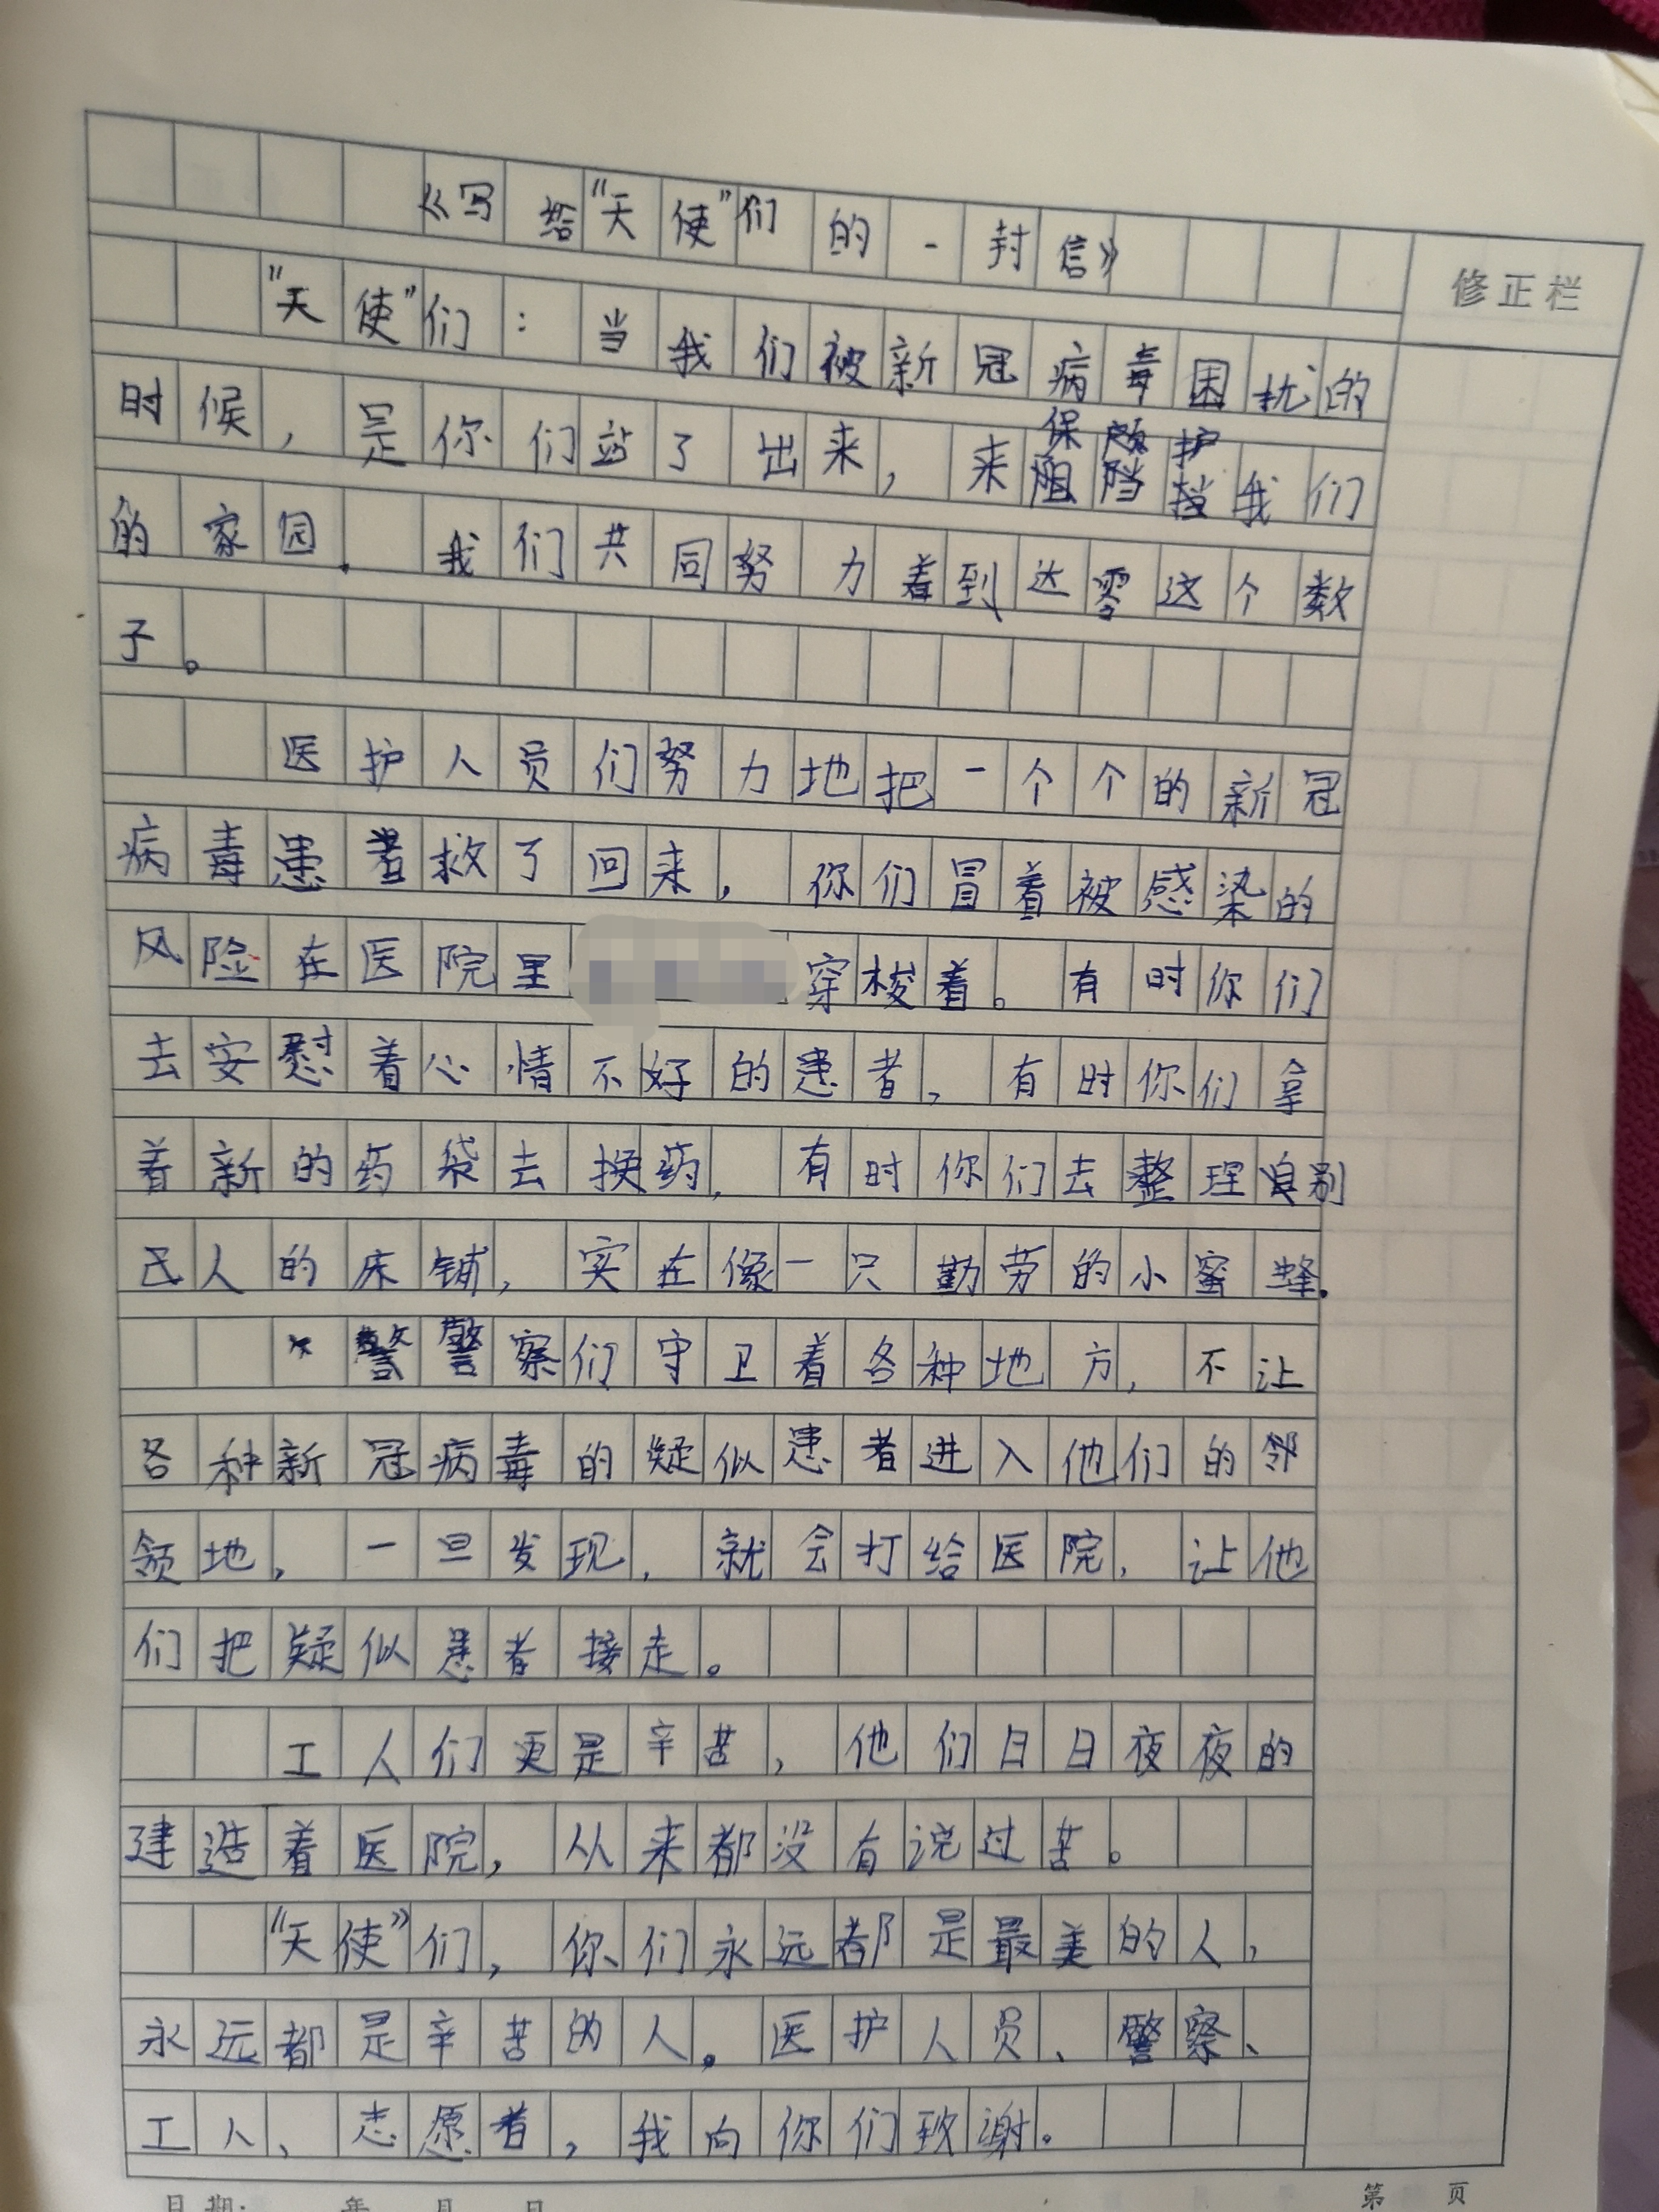 《写给“天使”们的一封信》
修正栏
“天使”们：当我们被新冠病毒困扰的
时候，是你们站了出来，来保护我们
的家园。我们共同努力着到达零这个数
子。
医护人员们努力地把一个个的新冠
病毒患者救了回来，你们冒着被感染的
风险在医院里穿梭着。有时你们
去安慰着心情不好的患者，有时你们拿
着新的药袋去换药，有时你们去整理别
人的床铺，实在像一只勤劳的小蜜蜂。
警察们守卫着各种地方，不让
各种新冠病毒的疑似患者进入他们的
领地，一旦发现，就会打给医院，让他
们把疑似患者接走。
工人们更是辛苦，他们日日夜夜的
建造着医院，从来都没有说过苦。
“天使”们，你们永远都是最美的人，
永远都是辛苦的人。医护人员、警察、
工人、志愿者，我向你们致谢。
日期： 年 月 日 第 页